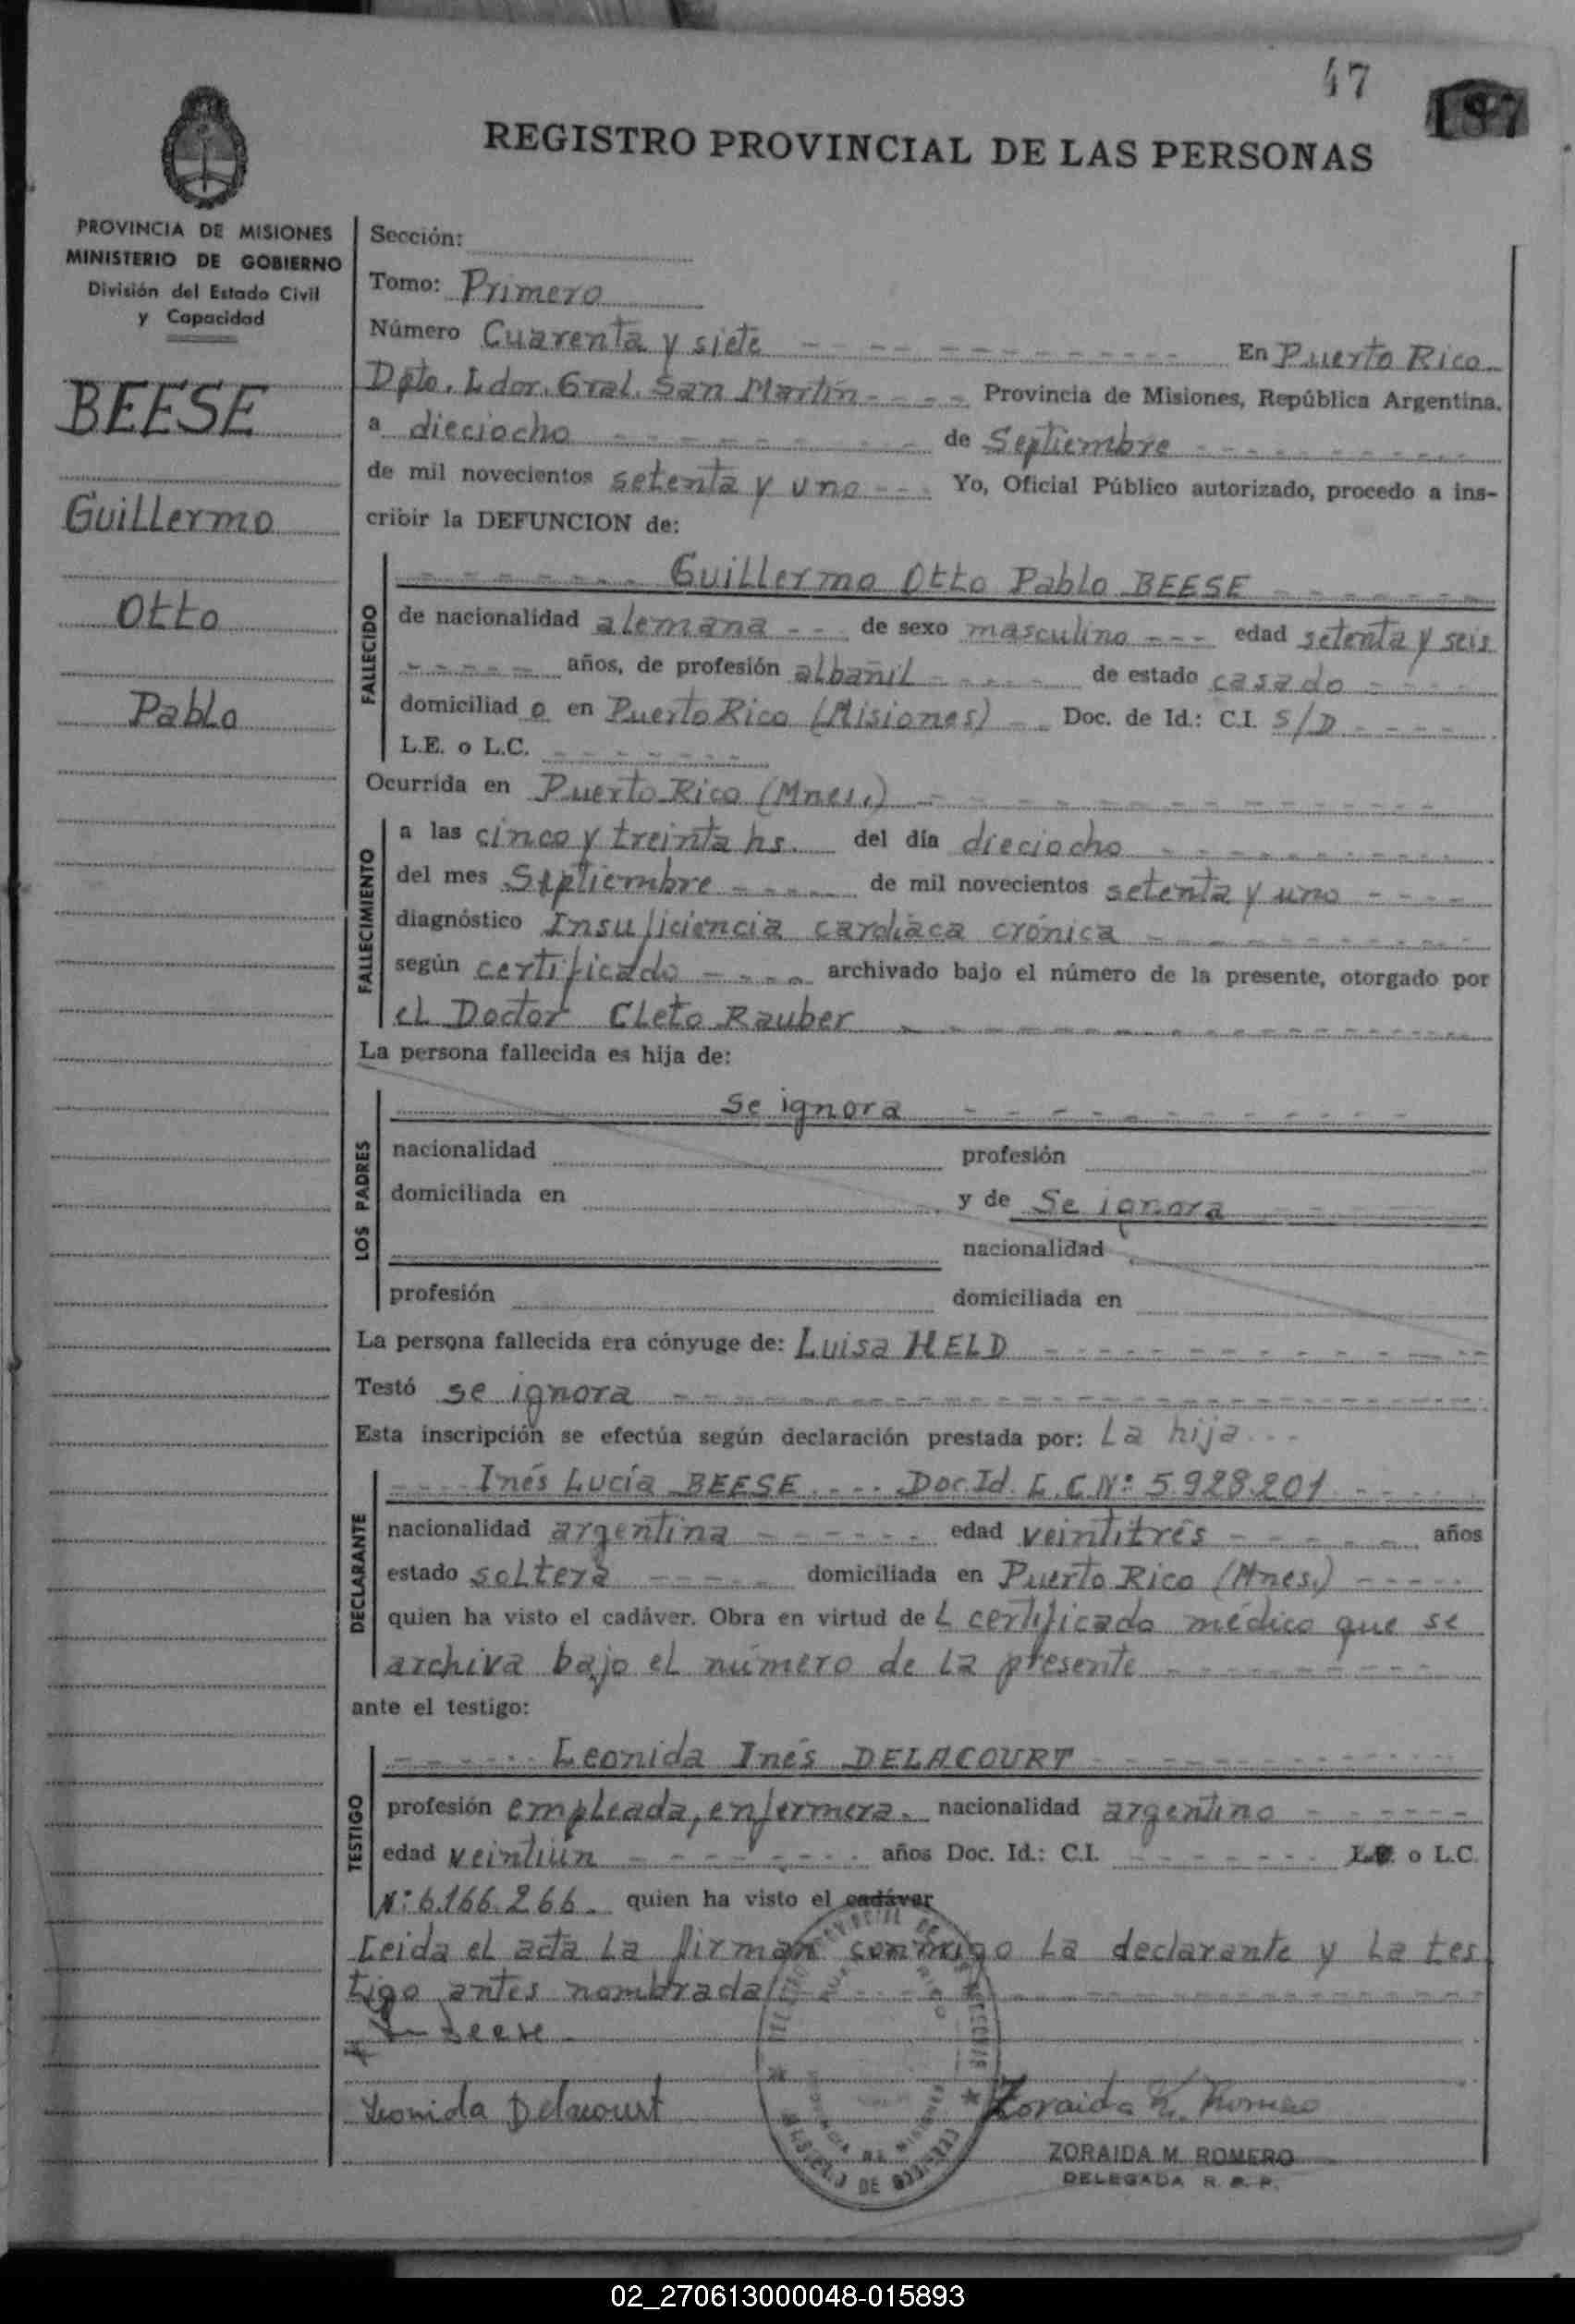 47
187
REGISTRO PROVINCIAL DE LAS PERSONAS
PROVINCIA DE MISIONES
MINISTERIO DE GOBIERNO
División del Estado Civil
y Capacidad
BEESE
Guillermo
Otto
Pablo
Sección:
Tomo: Primero
Número Cuarenta y siete En Puerto Rico
Dpto. Ldor. Gral. San Martín Provincia de Misiones, República Argentina.
a dieciocho de Septiembre
de mil novecientos setenta y uno Yo, Oficial Público autorizado, procedo a ins-
cribir la DEFUNCION de:
FALLECIDO
Guillermo Otto Pablo BEESE
de nacionalidad alemana de sexo masculino edad setenta y seis
años, de profesión albañil de estado casado
domiciliad o en Puerto Rico (Misiones) Doc. de Id.: C.I. S/D
L.E. o L.C.
Ocurrida en Puerto Rico (Mnes.)
FALLECIMIENTO
a las cinco y treinta hs. del día dieciocho
del mes Septiembre de mil novecientos setenta y uno
diagnóstico Insuficiencia cardíaca crónica
según certificado archivado bajo el número de la presente, otorgado por
el Doctor Cleto Rauber
La persona fallecida es hija de:
LOS PADRES
Se ignora
nacionalidad profesión
domiciliada en y de Se ignora
nacionalidad
profesión domiciliada en
La persona fallecida era cónyuge de: Luisa HELD
Testó se ignora
Esta inscripción se efectúa según declaración prestada por: La hija
DECLARANTE
Inés Lucía BEESE Doc. Id. L.C. Nº: 5.928.201
nacionalidad argentina edad veintitrés años
estado soltera domiciliada en Puerto Rico (Mnes.)
quien ha visto el cadáver. Obra en virtud de L certificado médico que se
archiva bajo el número de la presente
ante el testigo:
TESTIGO
Leonida Inés DELACOURT
profesión empleada, enfermera. nacionalidad argentino
edad veintiún años Doc. Id.: C.I. L.E. o L.C.
Nº: 6.166.266. quien ha visto el cadáver
Leida el acta la firman conmigo la declarante y la tes
tigo antes nombrada
Beese
Leonida Delacourt
Zoraida M. Romero
ZORAIDA M. ROMERO
DELEGADA R. P. P.
02_270613000048-015893